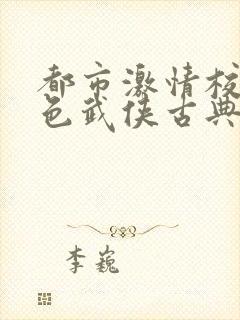 都市激情校
色武侠古典
李巍